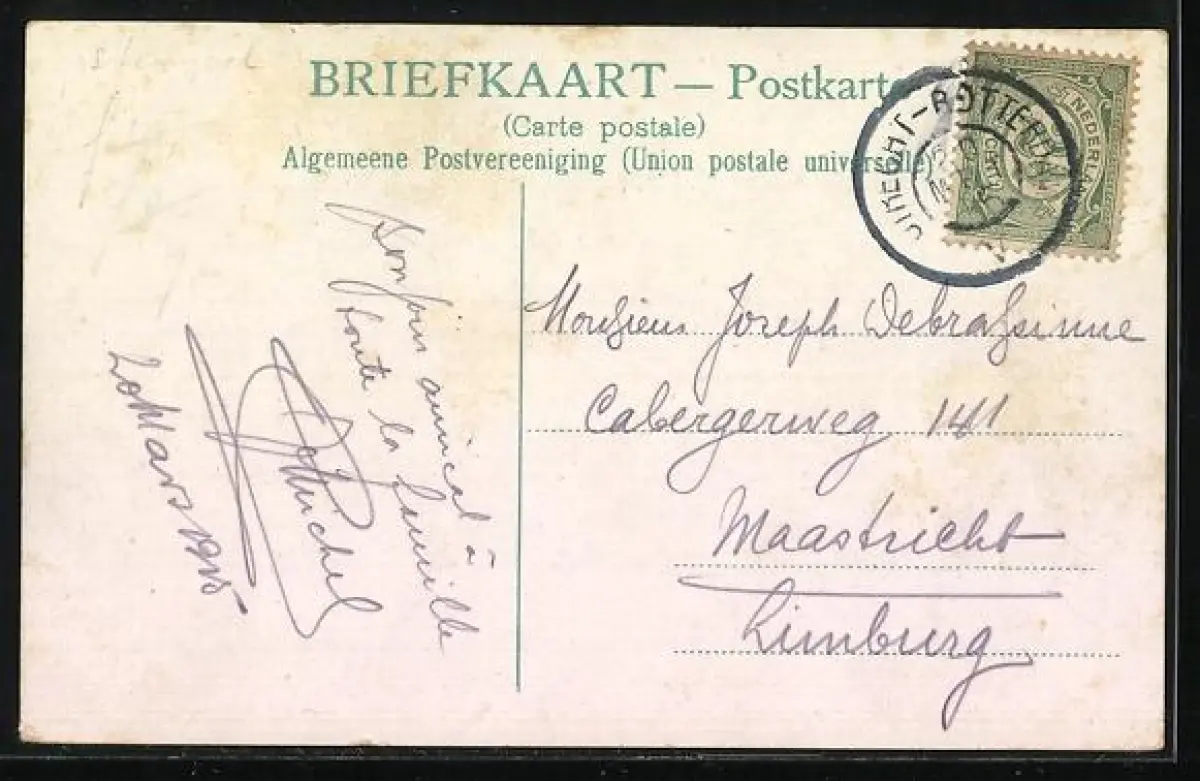 BRIEFKAART — Postkarte
(Carte postale)
Algemeene Postvereeniging (Union postale universelle)
UTRECHT-ROTTERDAM
NEDERLAND
Monsieur Joseph Debrassinne
Cabergerweg 141
Maastricht
Limburg
Bonjour amical à
toute la famille
Michel
20 Mars 1915